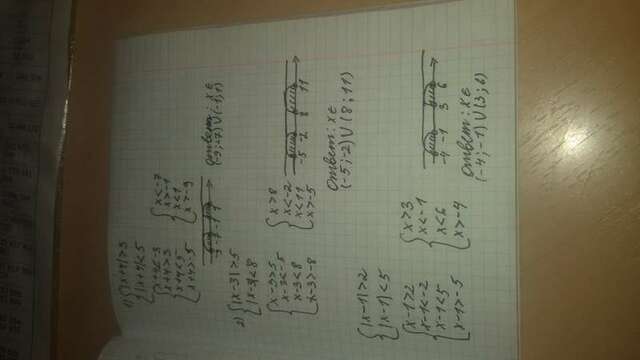 1) {|x+4|>3
{|x+4|<5
{x+4<-3
x+4>3
x+4<5
x+4>-5
{x<-7
x>-1
x<1
x>-9
-9 -7 -1 1
Ответ: x∈
(-9;-7)∪(-1;1)
2) {|x-3|>5
{|x-3|<8
{x-3>5
x-3<-5
x-3<8
x-3>-8
{x>8
x<-2
x<11
x>-5
-5 2 8 11
Ответ: x∈
(-5;-2)∪(8;11)
{|x-1|>2
{|x-1|<5
{x-1>2
x-1<-2
x-1<5
x-1>-5
{x>3
x<-1
x<6
x>-4
-4 -1 3 6
Ответ: x∈
(-4;-1)∪(3;6)